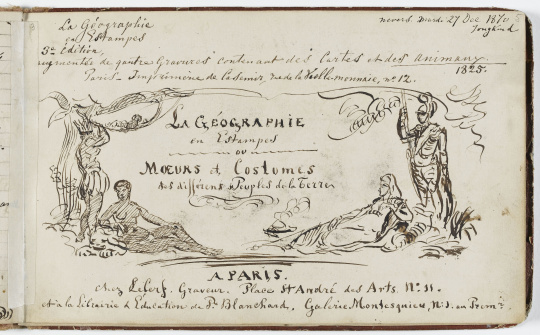 La Géographie
en Estampes
3e Edition,
augmentée de quatre Gravures contenant des Cartes et des animaux
Paris - Imprimerie de Casimir, rue de la Vieille-monnaie, no 12.
1825.
nevers, mardi 27 Dec 1870
Jongkind
LA GÉOGRAPHIE
en Estampes
ou
MŒURS et Costumes
des différens Peuples de la Terre
A PARIS.
chez Lecerf, Graveur, Place St André des Arts, No 11.
et à la Librairie d'Education de P. Blanchard, Galerie Montesquieu, N. 1. au Prem.